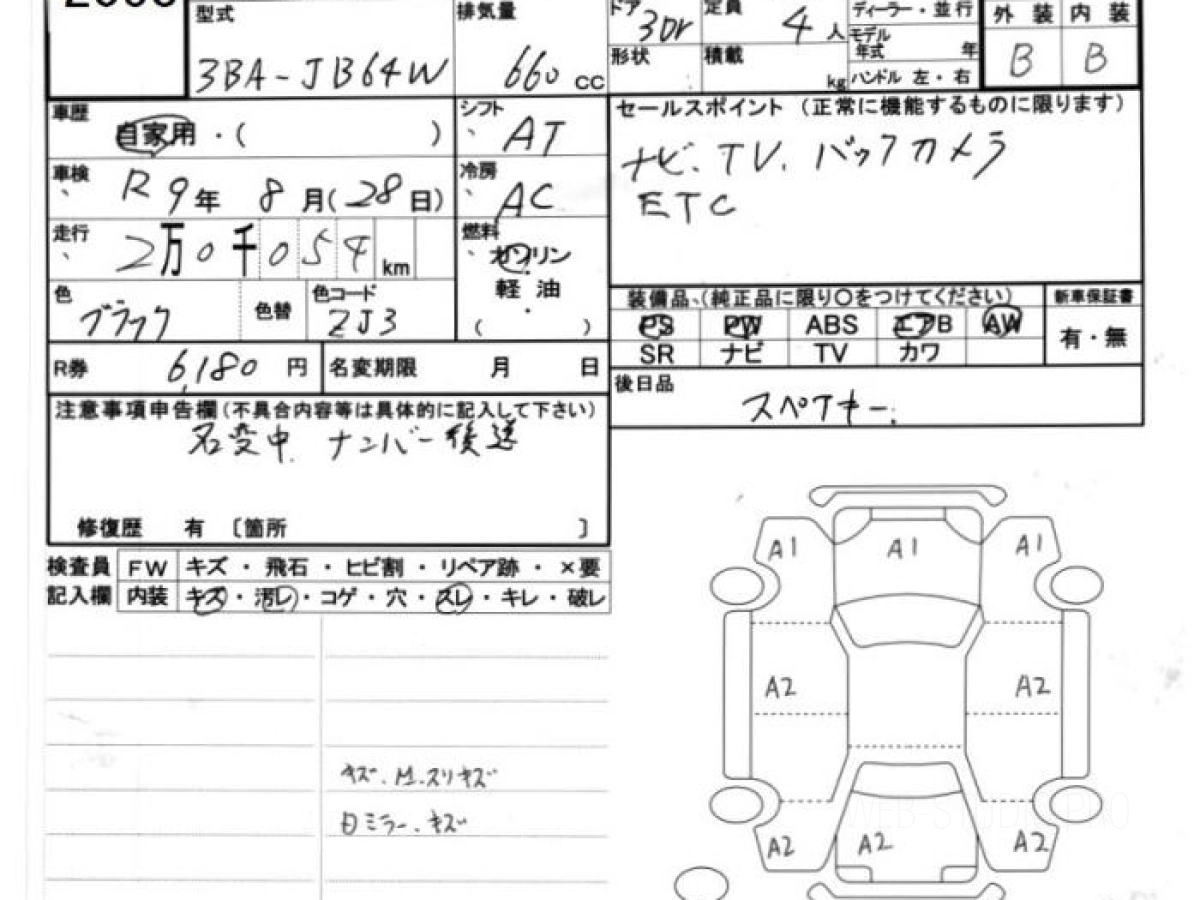 型式 排気量 ドア 3Dr 定員 4人 ディーラー・並行 外装 内装
モデル年式 年
3BA-JB64W 660cc 形状 積載 kg ハンドル 左・右 B B
車歴 自家用・( ) シフト AT セールスポイント (正常に機能するものに限ります)
ナビ、TV、バックカメラ
車検 R9年 8月(28日) 冷房 AC ETC
走行 2万0千054km 燃料 ガソリン
軽油
( )
色 ブラック 色替 色コード ZJ3 装備品、(純正品に限り○をつけてください) 新車保証書
PS PW ABS エアB AW 有・無
SR ナビ TV カワ
R券 6,180円 名変期限 月 日 後日品
スペアキー
注意事項申告欄(不具合内容等は具体的に記入して下さい)
名変中 ナンバー後送
修復歴 有 〔箇所 〕
検査員 FW キズ・飛石・ヒビ割・リペア跡・×要
記入欄 内装 キズ・汚レ・コゲ・穴・スレ・キレ・破レ
A1 A1 A1
A2 A2
キズ、 スリキズ
ミラー、キズ
A2 A2 A2